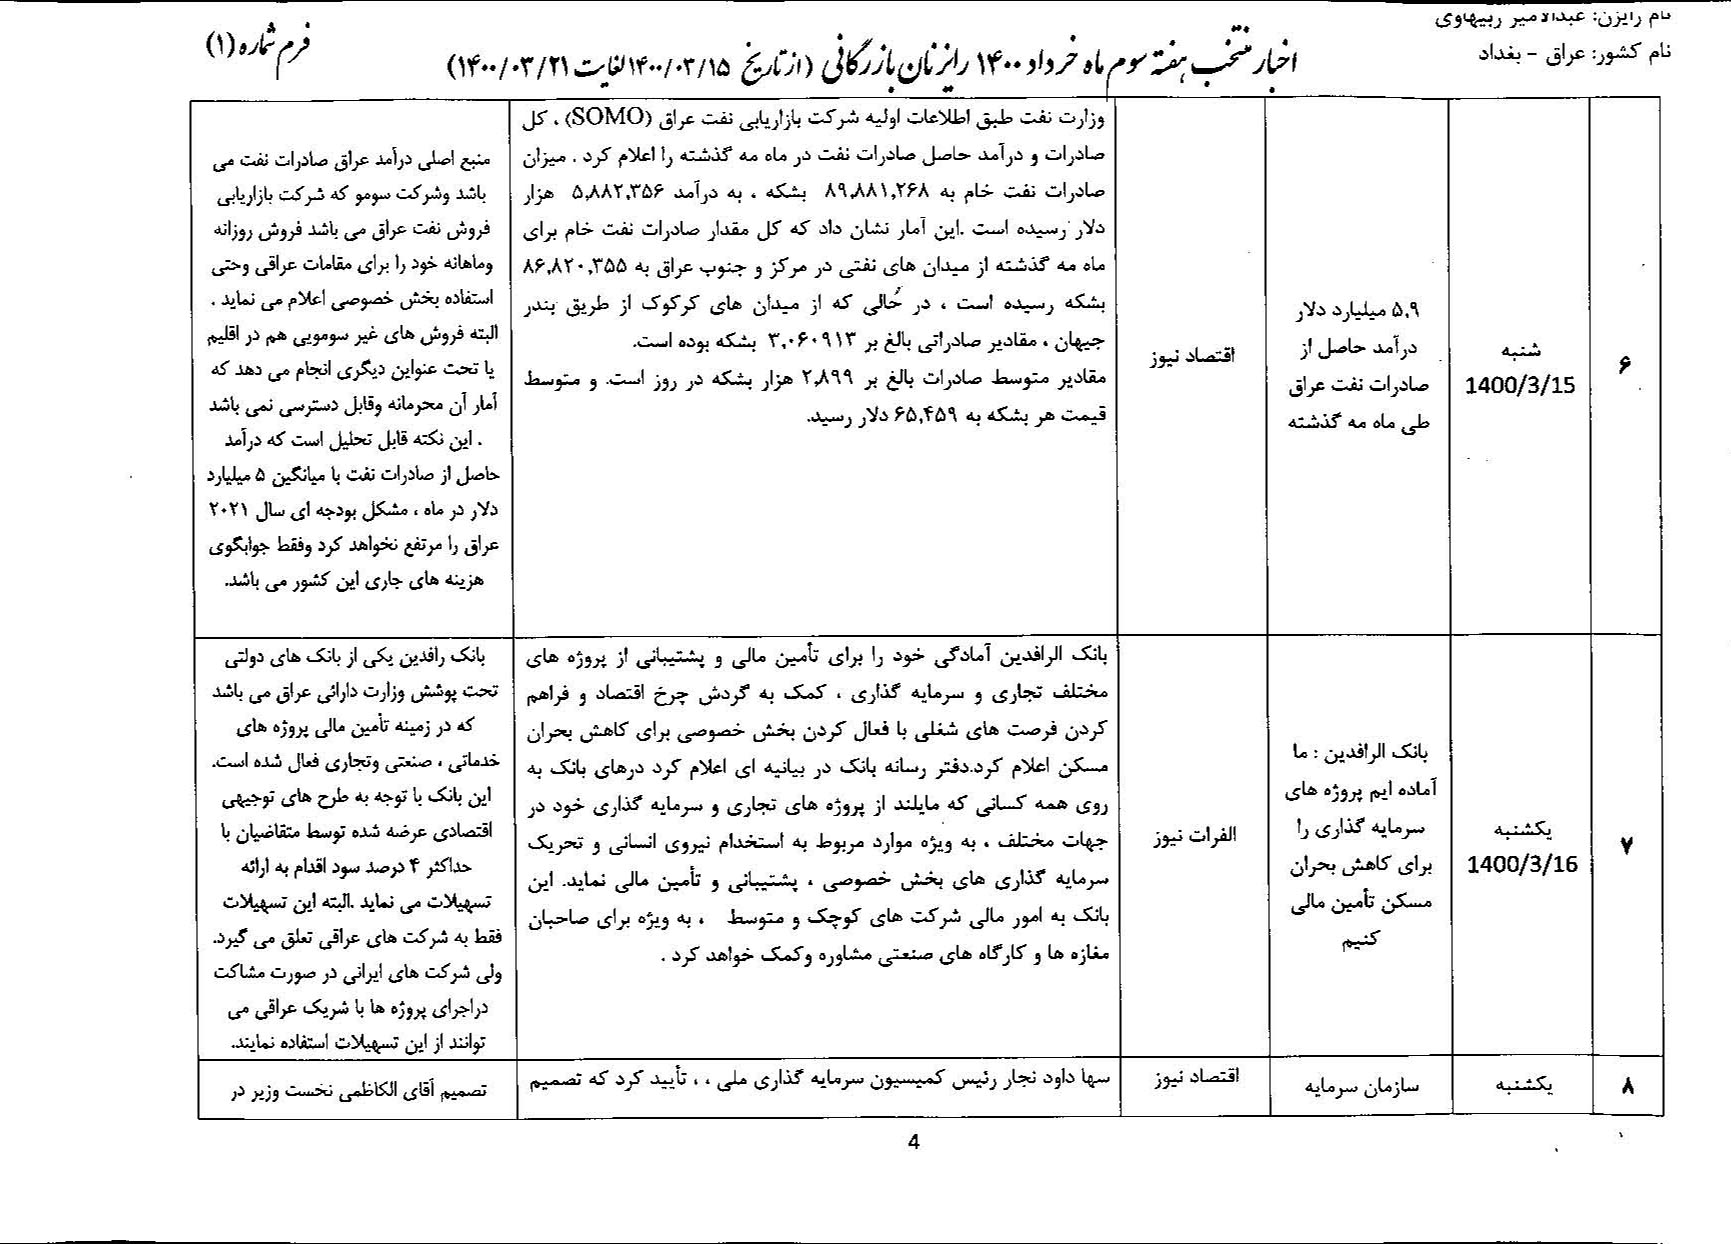 نام رایزن: عبدالامیر ربیهاوی
نام کشور: عراق - بغداد
اخبار منتخب هفته سوم ماه خرداد ۱۴۰۰ رایزنان بازرگانی (از تاریخ ۱۴۰۰/۰۳/۱۵ لغایت ۱۴۰۰/۰۳/۲۱)
فرم شماره (۱)
۶
شنبه
1400/3/15
۵,۹ میلیارد دلار
درآمد حاصل از
صادرات نفت عراق
طی ماه مه گذشته
اقتصاد نیوز
وزارت نفت طبق اطلاعات اولیه شرکت بازاریابی نفت عراق (SOMO) ، کل
صادرات و درآمد حاصل صادرات نفت در ماه مه گذشته را اعلام کرد . میزان
صادرات نفت خام به ۸۹,۸۸۱,۲۶۸ بشکه ، به درآمد ۵,۸۸۲,۳۵۶ هزار
دلار رسیده است .این آمار نشان داد که کل مقدار صادرات نفت خام برای
ماه مه گذشته از میدان های نفتی در مرکز و جنوب عراق به ۸۶,۸۲۰,۳۵۵
بشکه رسیده است ، در حالی که از میدان های کرکوک از طریق بندر
جیهان ، مقادیر صادراتی بالغ بر ۳,۰۶۰۹۱۳ بشکه بوده است.
مقادیر متوسط صادرات بالغ بر ۲,۸۹۹ هزار بشکه در روز است. و متوسط
قیمت هر بشکه به ۶۵,۴۵۹ دلار رسید.
منبع اصلی درآمد عراق صادرات نفت می
باشد وشرکت سومو که شرکت بازاریابی
فروش نفت عراق می باشد فروش روزانه
وماهانه خود را برای مقامات عراقی وحتی
استفاده بخش خصوصی اعلام می نماید .
البته فروش های غیر سومویی هم در اقلیم
یا تحت عنواین دیگری انجام می دهد که
آمار آن محرمانه وقابل دسترسی نمی باشد
. این نکته قابل تحلیل است که درآمد
حاصل از صادرات نفت با میانگین ۵ میلیارد
دلار در ماه ، مشکل بودجه ای سال ۲۰۲۱
عراق را مرتفع نخواهد کرد وفقط جوابگوی
هزینه های جاری این کشور می باشد.
۷
یکشنبه
1400/3/16
بانک الرافدین : ما
آماده ایم پروژه های
سرمایه گذاری را
برای کاهش بحران
مسکن تأمین مالی
کنیم
الفرات نیوز
بانک الرافدین آمادگی خود را برای تأمین مالی و پشتیبانی از پروژه های
مختلف تجاری و سرمایه گذاری ، کمک به گردش چرخ اقتصاد و فراهم
کردن فرصت های شغلی با فعال کردن بخش خصوصی برای کاهش بحران
مسکن اعلام کرد.دفتر رسانه بانک در بیانیه ای اعلام کرد درهای بانک به
روی همه کسانی که مایلند از پروژه های تجاری و سرمایه گذاری خود در
جهات مختلف ، به ویژه موارد مربوط به استخدام نیروی انسانی و تحریک
سرمایه گذاری های بخش خصوصی ، پشتیبانی و تأمین مالی نماید. این
بانک به امور مالی شرکت های کوچک و متوسط ، به ویژه برای صاحبان
مغازه ها و کارگاه های صنعتی مشاوره وکمک خواهد کرد .
بانک رافدین یکی از بانک های دولتی
تحت پوشش وزارت دارائی عراق می باشد
که در زمینه تأمین مالی پروژه های
خدماتی ، صنعتی وتجاری فعال شده است.
این بانک با توجه به طرح های توجیهی
اقتصادی عرضه شده توسط متقاضیان با
حداکثر ۴ درصد سود اقدام به ارائه
تسهیلات می نماید .البته این تسهیلات
فقط به شرکت های عراقی تعلق می گیرد.
ولی شرکت های ایرانی در صورت مشاکت
دراجرای پروژه ها با شریک عراقی می
توانند از این تسهیلات استفاده نمایند.
۸
یکشنبه
سازمان سرمایه
اقتصاد نیوز
سها داود نجار رئیس کمیسیون سرمایه گذاری ملی ، ، تأیید کرد که تصمیم
تصمیم آقای الکاظمی نخست وزیر در
4